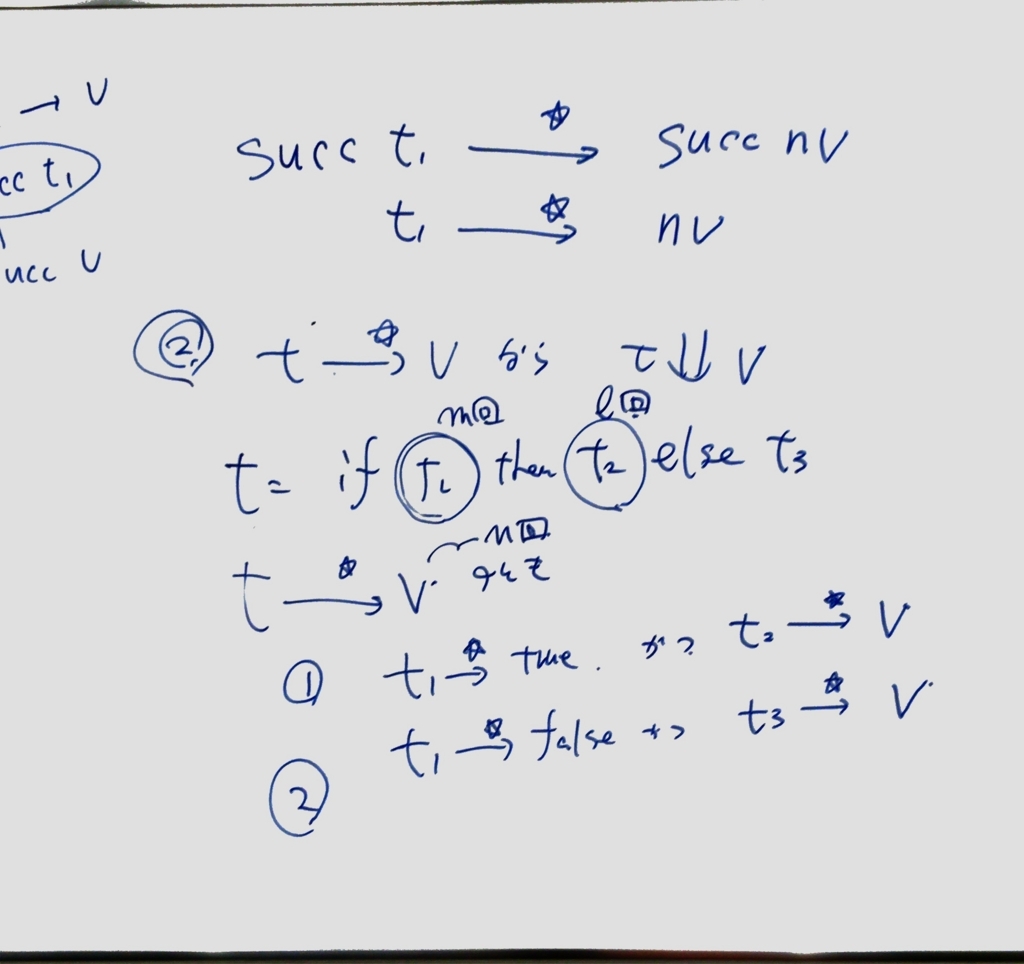 → v
cc t₁
ucc v
succ t₁ →* succ nv
t₁ →* nv
② t →* v から t ⇓ v
m回 l回
t = if t₁ then t₂ else t₃
n回
t →* v
① t₁ →* true かつ t₂ →* v
② t₁ →* false かつ t₃ →* v